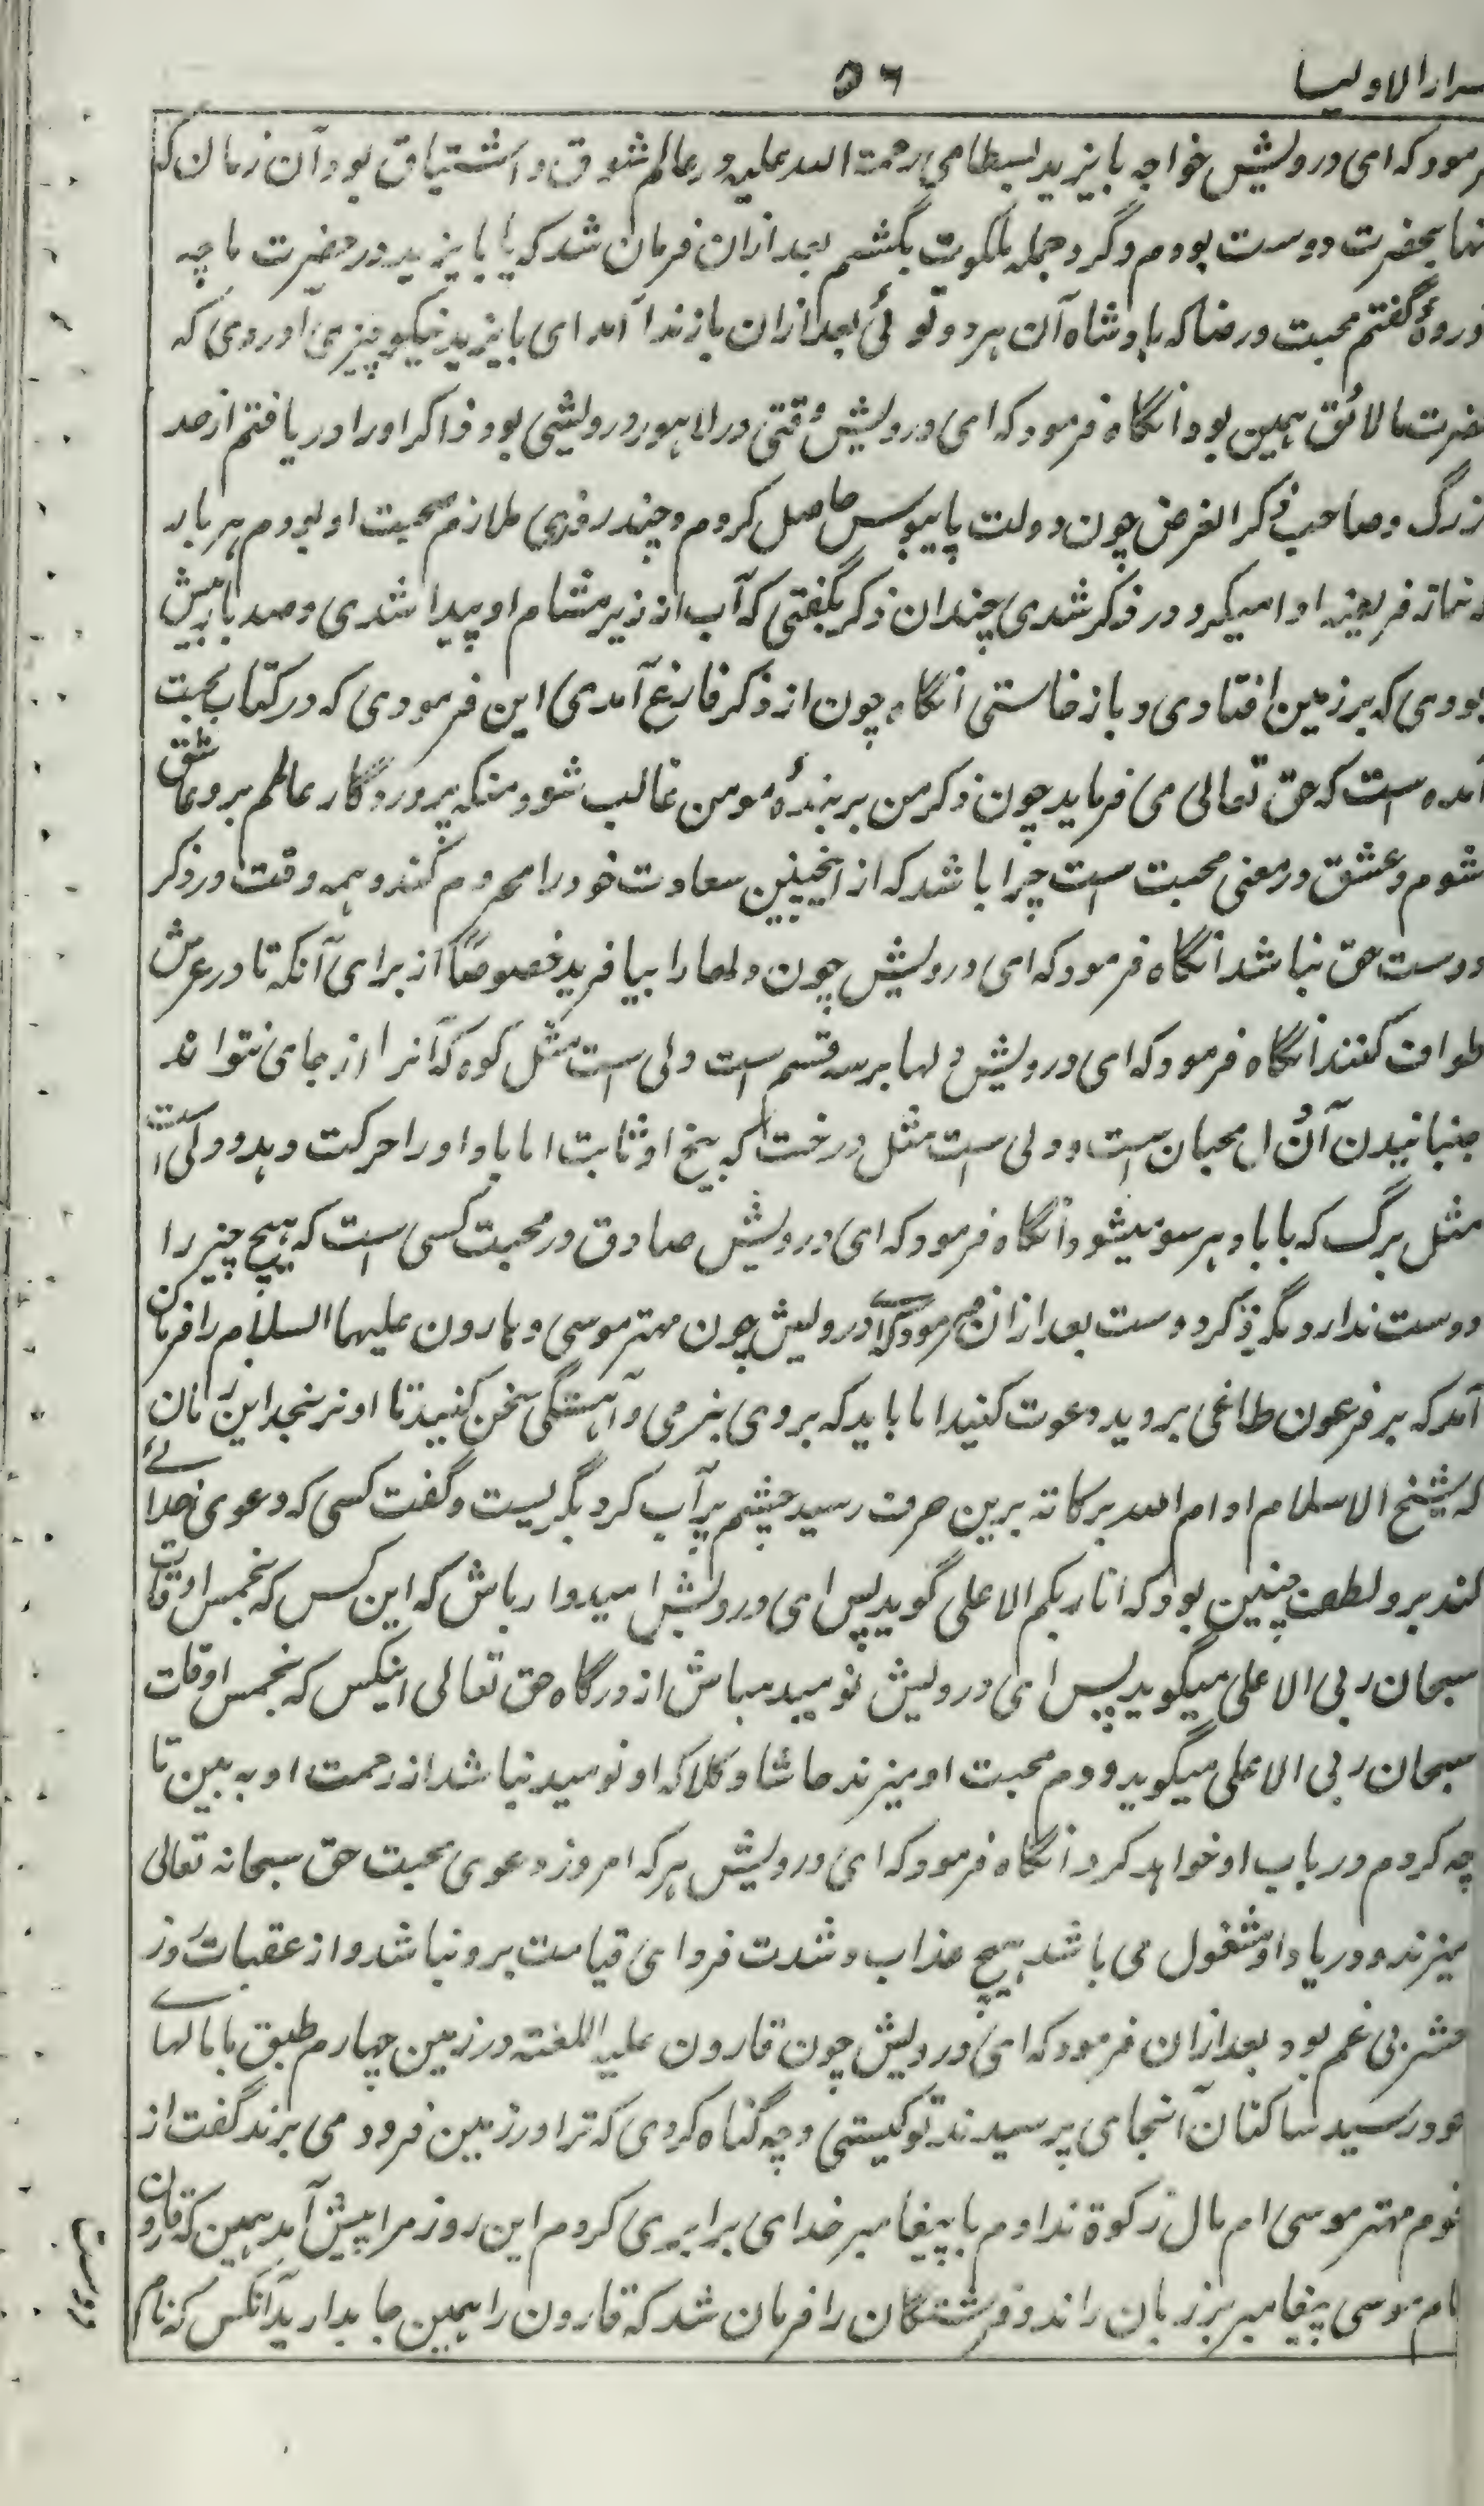 سرارالاولیا ۵۶
رمود که ای درویش خواجه بایزید بسطامی رحمت الله علیه در عالم شوق و اشتیاق بود آن زمان که
نها بحضرت دوست بودم و گرد جمله ملکوت بگشتم بعد ازان فرمان شد که یا بایزید در حضرت ما چه
وردهٔ گفتم محبت و رضا که بادشاه آن هر دو توئی بعد ازان باز ندا آمد ای بایزید نیکو چیزی آوردی که
ضرت ما لائق همین بود انگاه فرمود که ای درویش وقتی در لاهور درویشی بود ذاکر اورا دریافتم از حد
زرگ و صاحب ذکر الغرض چون دولت پایبوس حاصل کردم و چند روزی ملازم صحبت او بودم هر بار
نماز فریضه ادا میکرد در ذکر شدی چندان ذکر بگفتی که آب از زیر مشام او پیدا شدی و صد بار بیش
بودی که بر زمین افتادی و باز خاستی انگاه چون از ذکر فارغ آمدی این فرمودی که در کتاب محبت
آمده است که حق تعالی می فرماید چون ذکر من بر بندهٔ مومن غالب شود منکه پروردگار عالمم برو عاشق
شوم و عشق در معنی محبت است چرا باشد که از اینچنین سعادت خود را محروم کند و همه وقت در ذکر
دوست حق نباشد انگاه فرمود که ای درویش چون دلها را بیافرید خصوصاً از برای آنکه تا در عرش
طواف کنند انگاه فرمود که ای درویش دلها بر سه قسم است دلی است مثل کوه که آنرا از جای نتواند
جنبانیدن آن دل محبان است و دلی است مثل درخت که بیخ او ثابت اما باد او را حرکت دهد و دلی است
مثل برگ که با باد هر سو میشود انگاه فرمود که ای درویش صادق در محبت کسی است که هیچ چیز را
دوست ندارد مگر ذکر دوست بعد ازان فرمود که ای درویش چون مهتر موسی و هارون علیهما السلام را فرمان
آمد که بر فرعون طاغی بروید و دعوت کنید اما باید که بروی بنرمی و آهستگی سخن کنید تا او نرنجد این زمان
که شیخ الاسلام ادام الله برکاته برین حرف رسید چشم پر آب کرد بگریست و گفت کسی که دعوی خدائے
کند برو لطف چنین بود که انا ربکم الاعلی گوید پس ای درویش امیدوار باش که این کس که بخمس اوقات
سبحان ربی الاعلی میگوید پس ای درویش نومید مباش از درگاه حق تعالی اینکس که بخمس اوقات
سبحان ربی الاعلی میگوید و دم محبت او میزند حاشا و کلا که او نومید نباشد از رحمت او به بین تا
چه کردم در باب او خواهد کرد انگاه فرمود که ای درویش هر که امروز دعوی محبت حق سبحانه تعالی
میزند و در یاد او مشغول می باشد هیچ عذاب و شدت فردای قیامت برو نباشد و از عقبات روز
حشر بی غم بود بعد ازان فرمود که ای درویش چون قارون علیه اللعنته در زمین چهارم طبق با مالهاے
خود رسید ساکنان آنجای پرسیدند تو کیستی و چه گناه کردی که ترا در زمین فرود می برند گفت از
قوم مهتر موسی ام مال زکوة ندادم با پیغامبر خدای برابری کردم این روز مرا پیش آمد همین که قارون
نام موسی پیغامبر بر زبان راند فرشتگان را فرمان شد که قارون را همین جا بدارید آنکس که نام